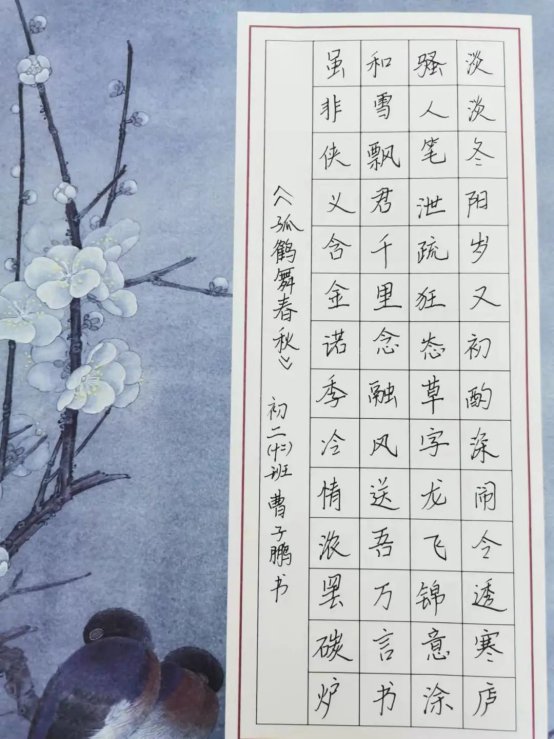 淡淡冬阳岁又初酌深闹令透寒庐
骚人笔泄疏狂态草字龙飞锦意涂
和雪飘君千里念融风送吾万言书
虽非侠义含金诺季冷情浓罢碳炉
《孤鹤舞春秋》
初二(十二)班曹子鹏书